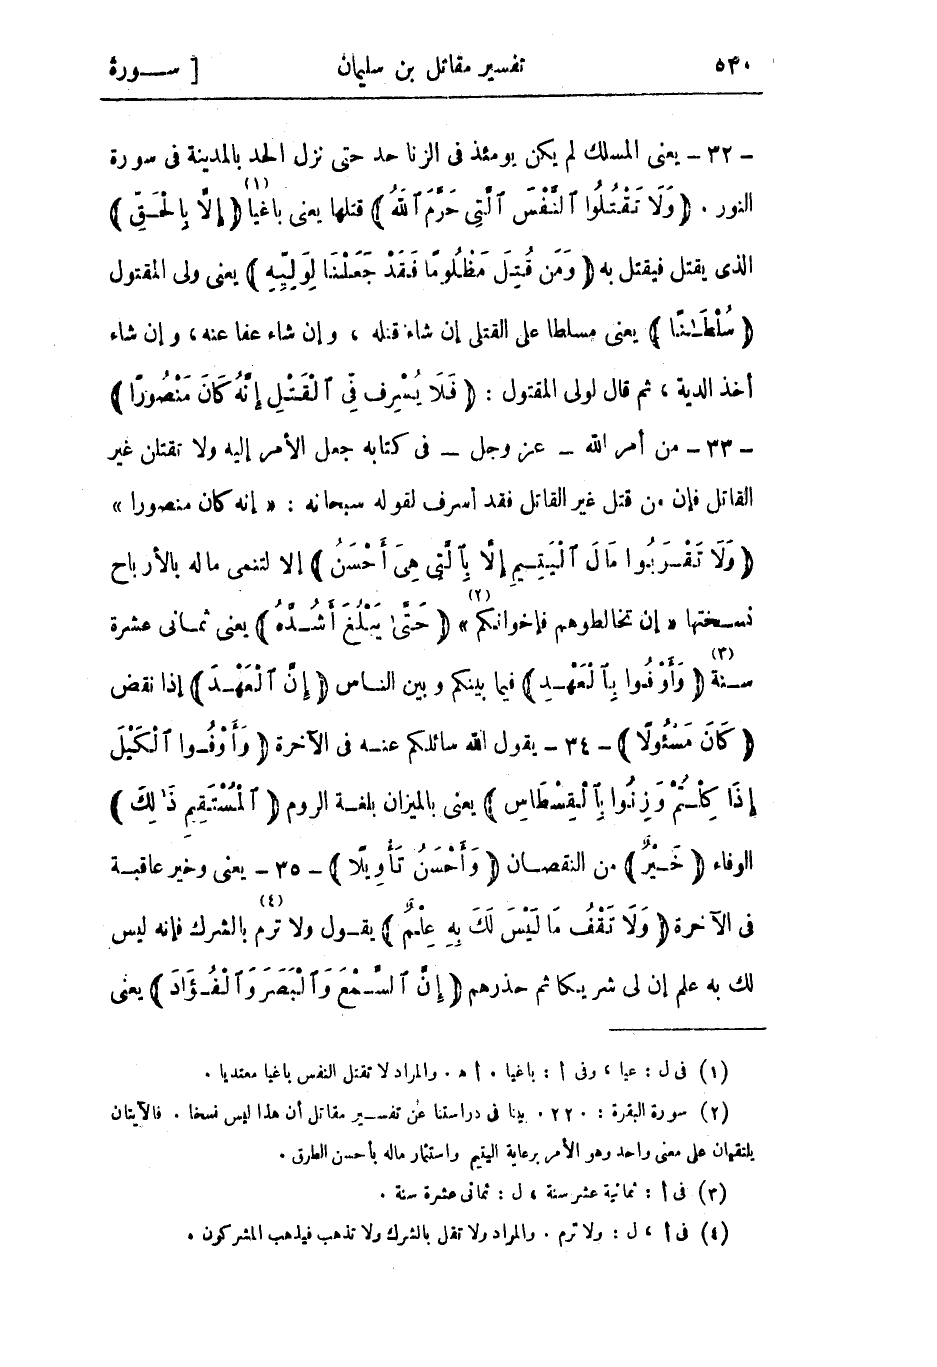 ٥٣٠ تفسير مقاتل بن سليمان [ ســورة
ـ ٣٢ ـ يعنى المسلك لم يكن يومئذ فى الزنا حد حتى نزل الحد بالمدينة فى سورة
النور . ( وَلَا تَقْتُلُوا ٱلنَّفْسَ ٱلَّتِى حَرَّمَ ٱللَّهُ ) قتلها يعنى باغيا (١) ( إِلَّا بِالْحَقِّ )
الذى يقتل فيقتل به ( وَمَن قُتِلَ مَظْلُومًا فَقَدْ جَعَلْنَا لِوَلِيِّهِ ) يعنى ولى المقتول
( سُلْطَـٰنًا ) يعنى مسلطا على القتلى إن شاء قتله ، وإن شاء عفا عنه ، وإن شاء
أخذ الدية ، ثم قال لولى المقتول : ( فَلَا يُسْرِف فِّى ٱلْقَتْلِ إِنَّهُ كَانَ مَنْصُورًا )
ـ ٣٣ ـ من أمر الله ـ عز وجل ـ فى كتابه جعل الأمر إليه ولا تقتلن غير
القاتل فإن من قتل غير القاتل فقد أسرف لقوله سبحانه : « إنه كان منصورا »
( وَلَا تَقْرَبُوا مَالَ ٱلْيَتِيمِ إِلَّا بِٱلَّتِى هِىَ أَحْسَنُ ) إلا لتنمى ماله بالأرباح
نسختها « إن تخالطوهم فإخوانكم » (٢) ( حَتَّىٰ يَبْلُغَ أَشُدَّهُ ) يعنى ثمانى عشرة
سنة (٣) ( وَأَوْفُوا بِٱلْعَهْدِ ) فيما بينكم وبين الناس ( إِنَّ ٱلْعَهْدَ ) إذا نقض
( كَانَ مَسْئُولًا ) ـ ٣٤ ـ يقول الله سائلكم عنه فى الآخرة ( وَأَوْفُوا ٱلْكَيْلَ
إِذَا كِلْتُمْ وَزِنُوا بِٱلْقِسْطَاسِ ) يعنى بالميزان بلغة الروم ( ٱلْمُسْتَقِيمِ ذَٰلِكَ )
الوفاء ( خَيْرٌ ) من النقصان ( وَأَحْسَنُ تَأْوِيلًا ) ـ ٣٥ ـ يعنى وخير عاقبة
فى الآخرة ( وَلَا تَقْفُ مَا لَيْسَ لَكَ بِهِ عِلْمٌ ) يقول ولا ترم (٤) بالشرك فإنه ليس
لك به علم إن لى شريكا ثم حذرهم ( إِنَّ ٱلسَّمْعَ وَٱلْبَصَرَ وَٱلْفُؤَادَ ) يعنى
(١) فى ل : عيا ، وفى أ : باغيا . أ ه . والمراد لا تقتل النفس باغيا معتديا .
(٢) سورة البقرة : ٢٢٠ . بينا فى دراستنا عن تفسير مقاتل أن هذا ليس نسخا . فالآيتان
يلتقيان على معنى واحد وهو الأمر برعاية اليتيم واستثمار ماله بأحسن الطرق .
(٣) فى أ : ثمانية عشر سنة ، ل : ثمانى عشرة سنة .
(٤) فى أ ، ل : ولا ترم . والمراد ولا تقل بالشرك ولا تذهب فيذهب المشركون .